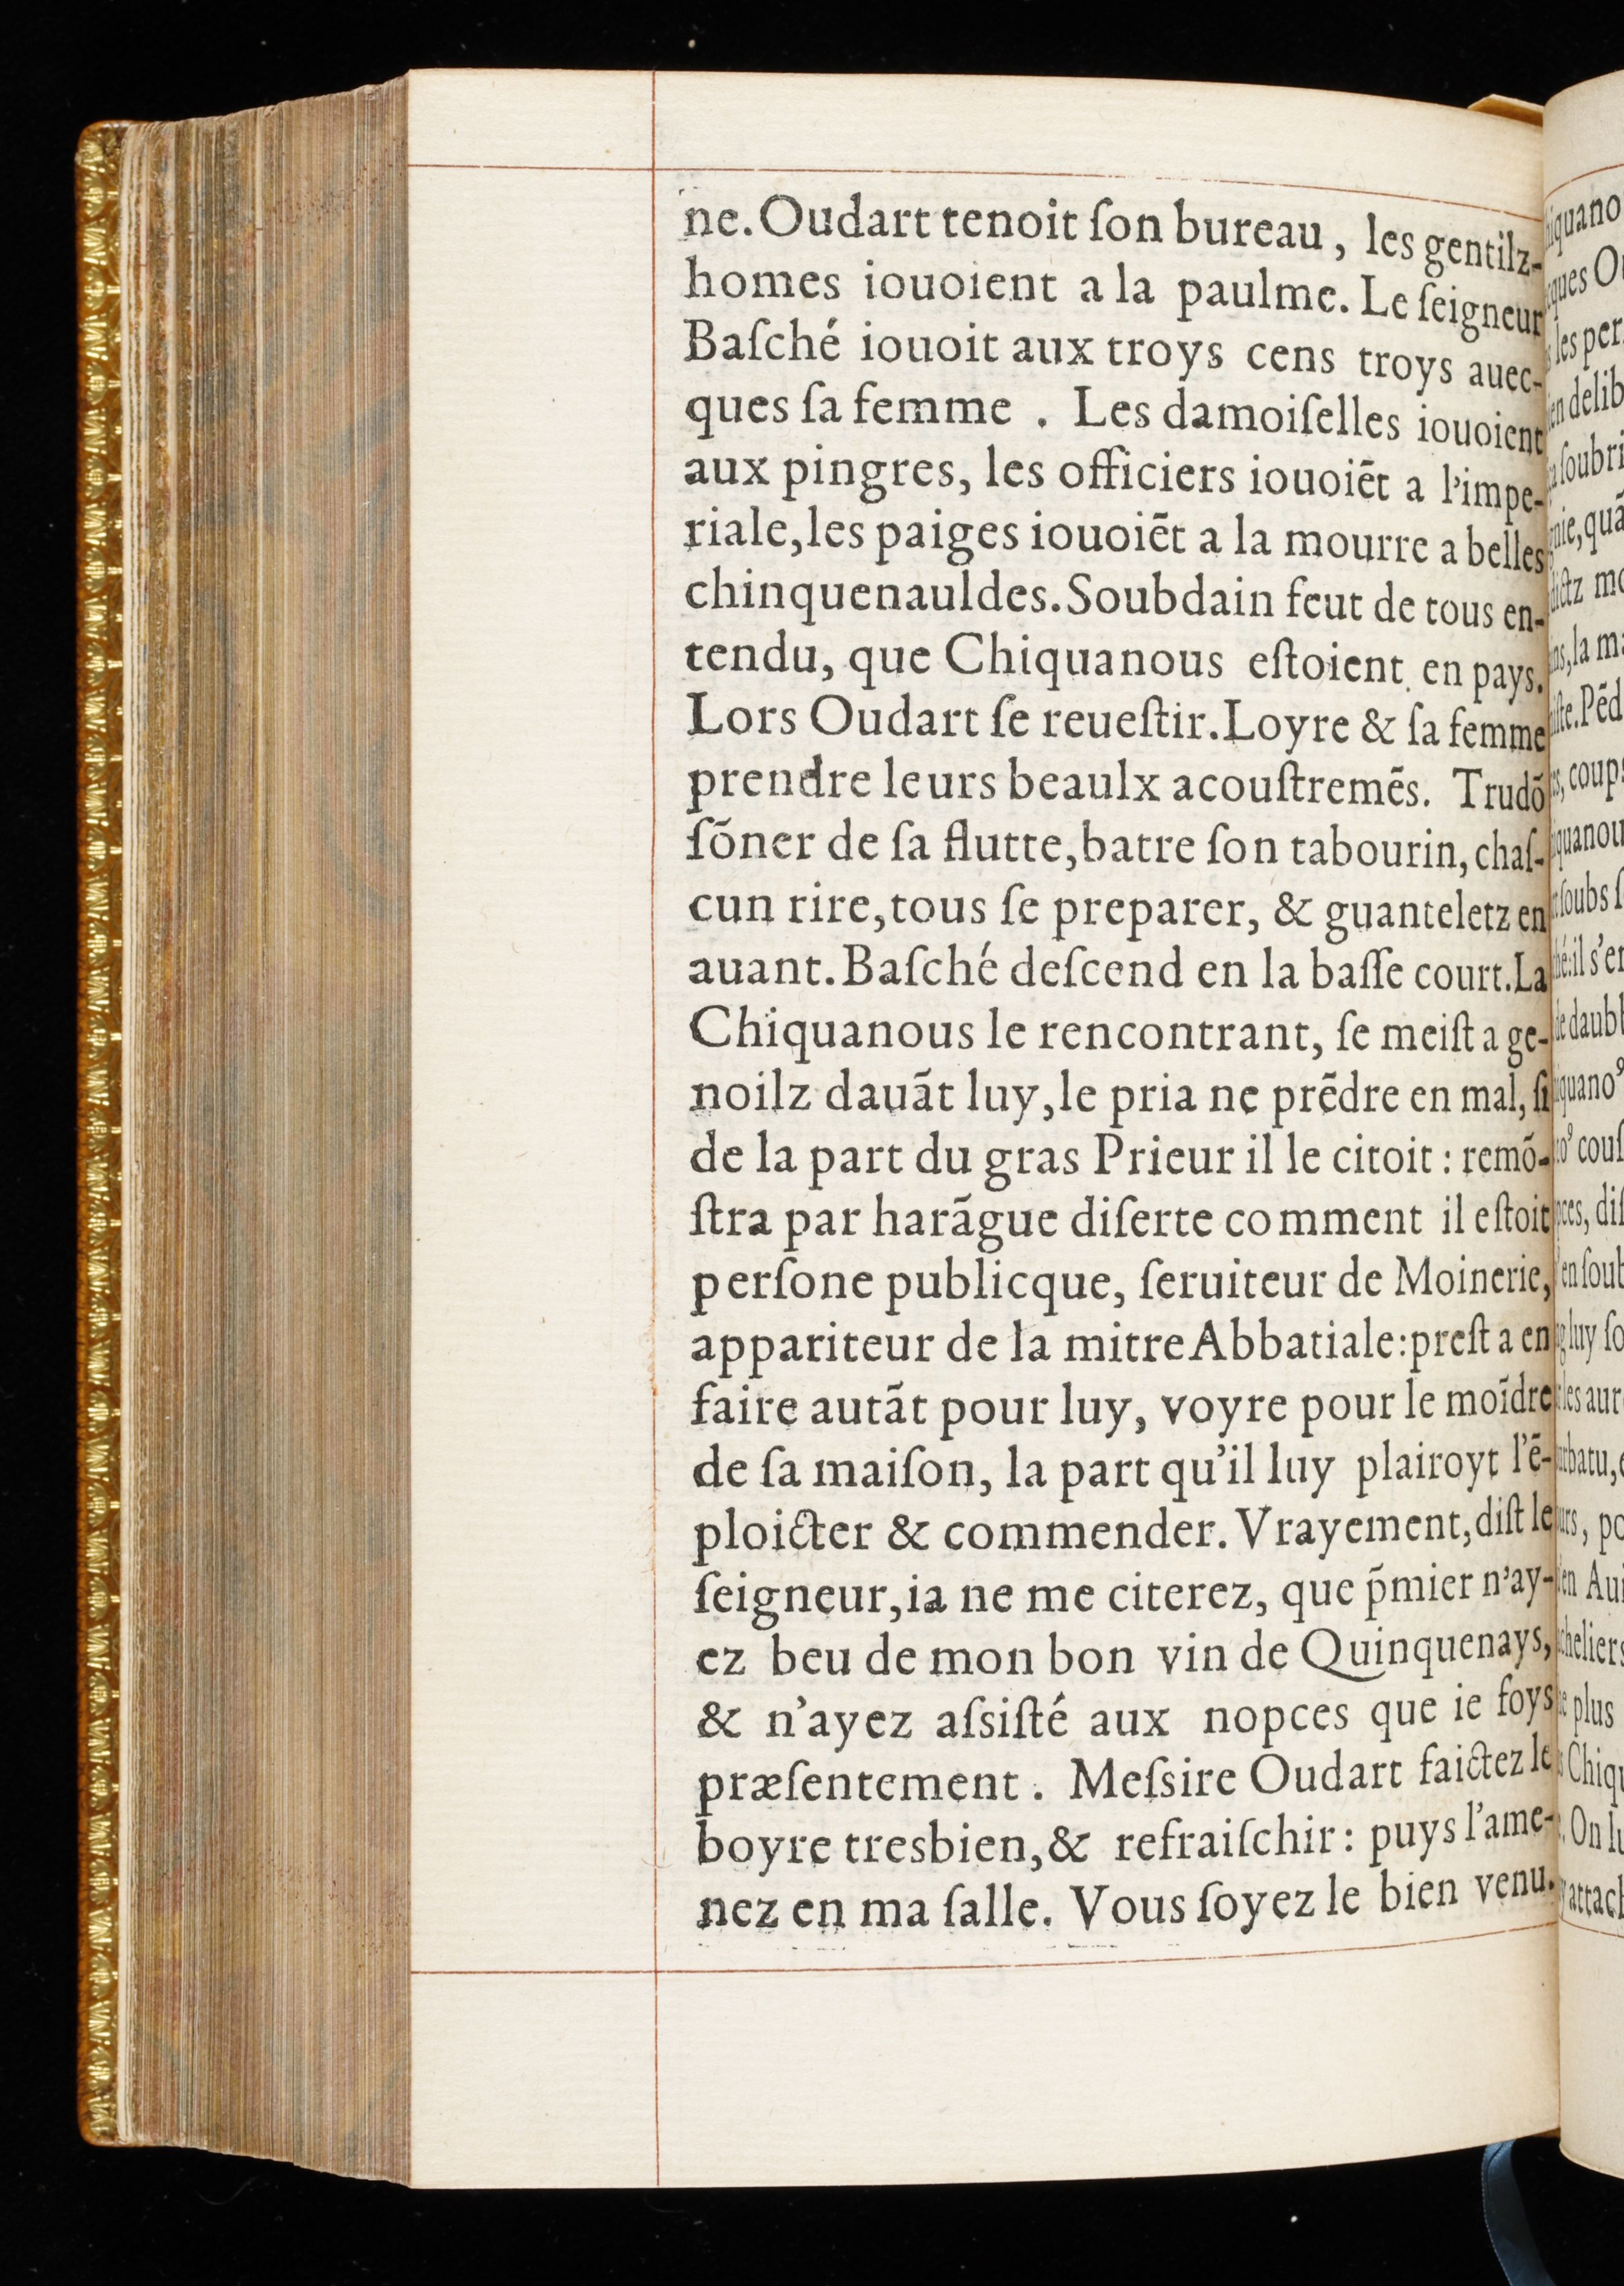 ne. Oudart tenoit ſon bureau, les gentilz-
homes iouoient a la paulme. Le ſeigneur
Baſché iouoit aux troys cens troys auec-
ques ſa femme . Les damoiſelles iouoient
aux pingres, les officiers iouoiēt a l'impe-
riale, les paiges iouoiēt a la mourre a belles
chinquenauldes. Soubdain feut de tous en-
tendu, que Chiquanous eſtoient en pays.
Lors Oudart ſe reueſtir. Loyre & ſa femme
prendre leurs beaulx acouſtremēs. Trudō
ſōner de ſa flutte, batre ſon tabourin, chaſ-
cun rire, tous ſe preparer, & guanteletz en
auant. Baſché deſcend en la baſſe court. La
Chiquanous le rencontrant, ſe meiſt a ge-
noilz dauāt luy, le pria ne prēdre en mal, ſi
de la part du gras Prieur il le citoit : remō-
ſtra par harāgue diſerte comment il eſtoit
perſone publicque, ſeruiteur de Moinerie,
appariteur de la mitre Abbatiale: preſt a en
faire autāt pour luy, voyre pour le moīdre
de ſa maiſon, la part qu'il luy plairoyt l'ē-
ploicter & commender. Vrayement, diſt le
ſeigneur, ia ne me citerez, que p̄mier n'ay-
ez beu de mon bon vin de Quinquenays,
& n'ayez aſsiſté aux nopces que ie foys
præſentement . Meſsire Oudart faictez le
boyre tresbien, & refraiſchir : puys l'ame-
nez en ma ſalle. Vous ſoyez le bien venu.